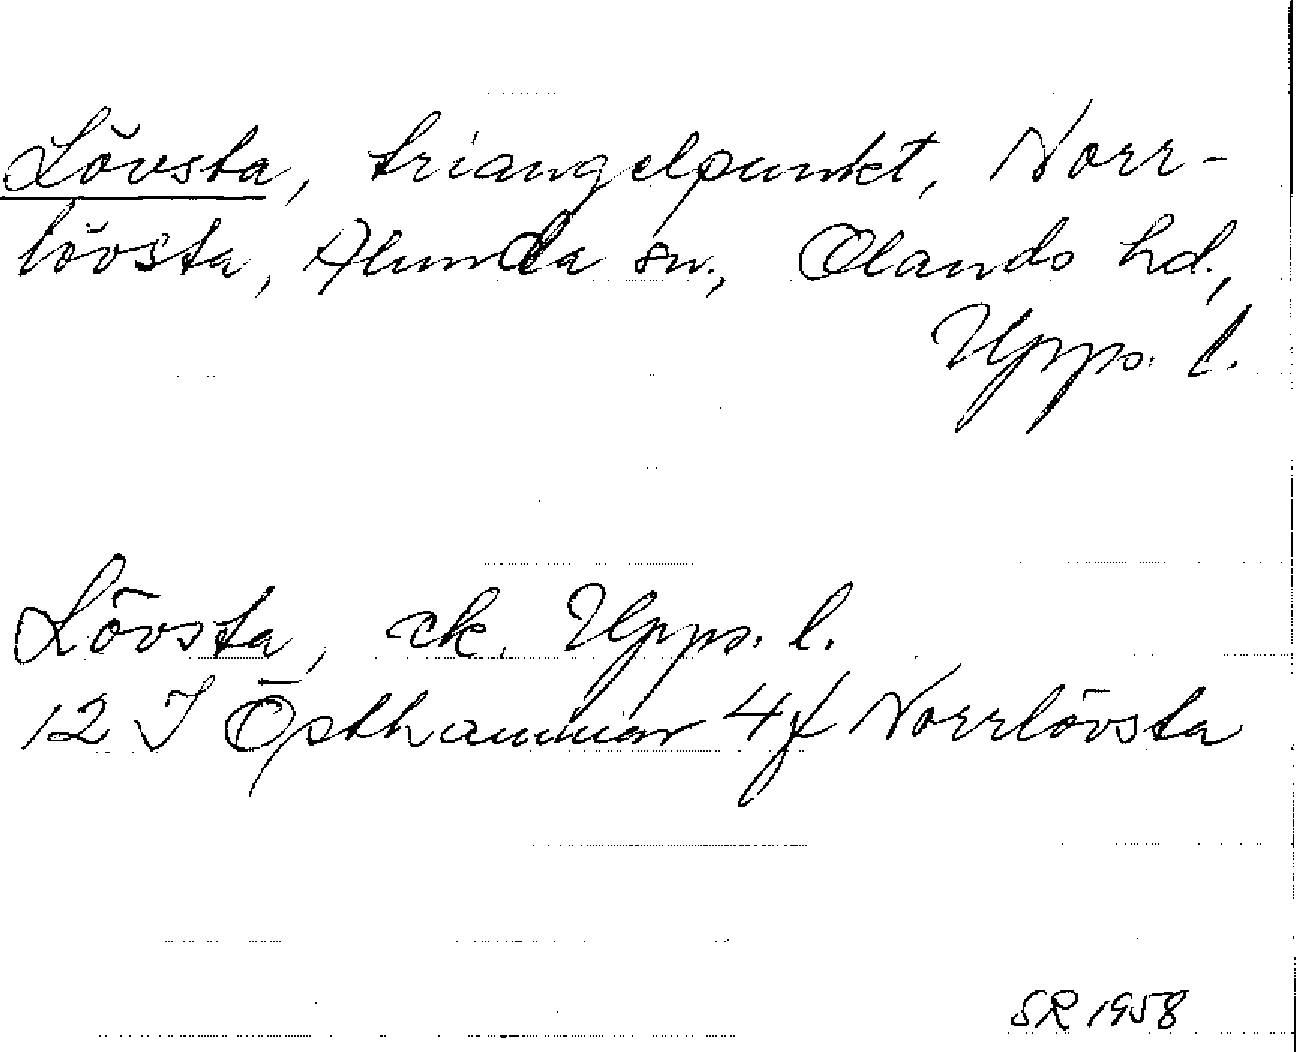 Lövsta, triangelpunkt, Norr-
lövsta, Alunda sn., Olands hd.,
Upps. l.
Lövsta, ek. Upps. l.
12 I Östhammar 4f Norrlövsta
SR 1958